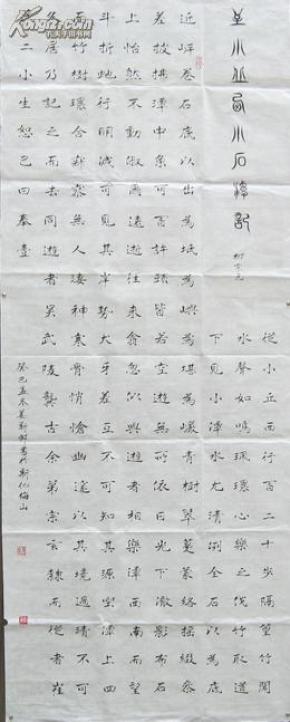 至小丘西小石潭記
柳宗元
從小丘西行百二十步隔篁竹聞
水聲如鳴珮環心樂之伐竹取道
下見小潭水尤清冽全石以為底
近岸卷石底以出為坻為嶼為堪為巖青樹翠蔓蒙絡搖綴參
差披拂潭中魚可百許頭皆若空遊無所依日光下澈影布石
上怡然不動俶爾遠逝往來翕忽似與遊者相樂潭西南而望
斗折蛇行明滅可見其岸勢犬牙差互不可知其源坐潭上四
面竹樹環合寂寥無人淒神寒骨悄愴幽邃以其境過清不可
久居乃記之而去同遊者吳武陵龔古余弟宗玄隸而從者崔
氏二小生恕己曰奉壹
癸巳孟冬姜新書於新化梅山